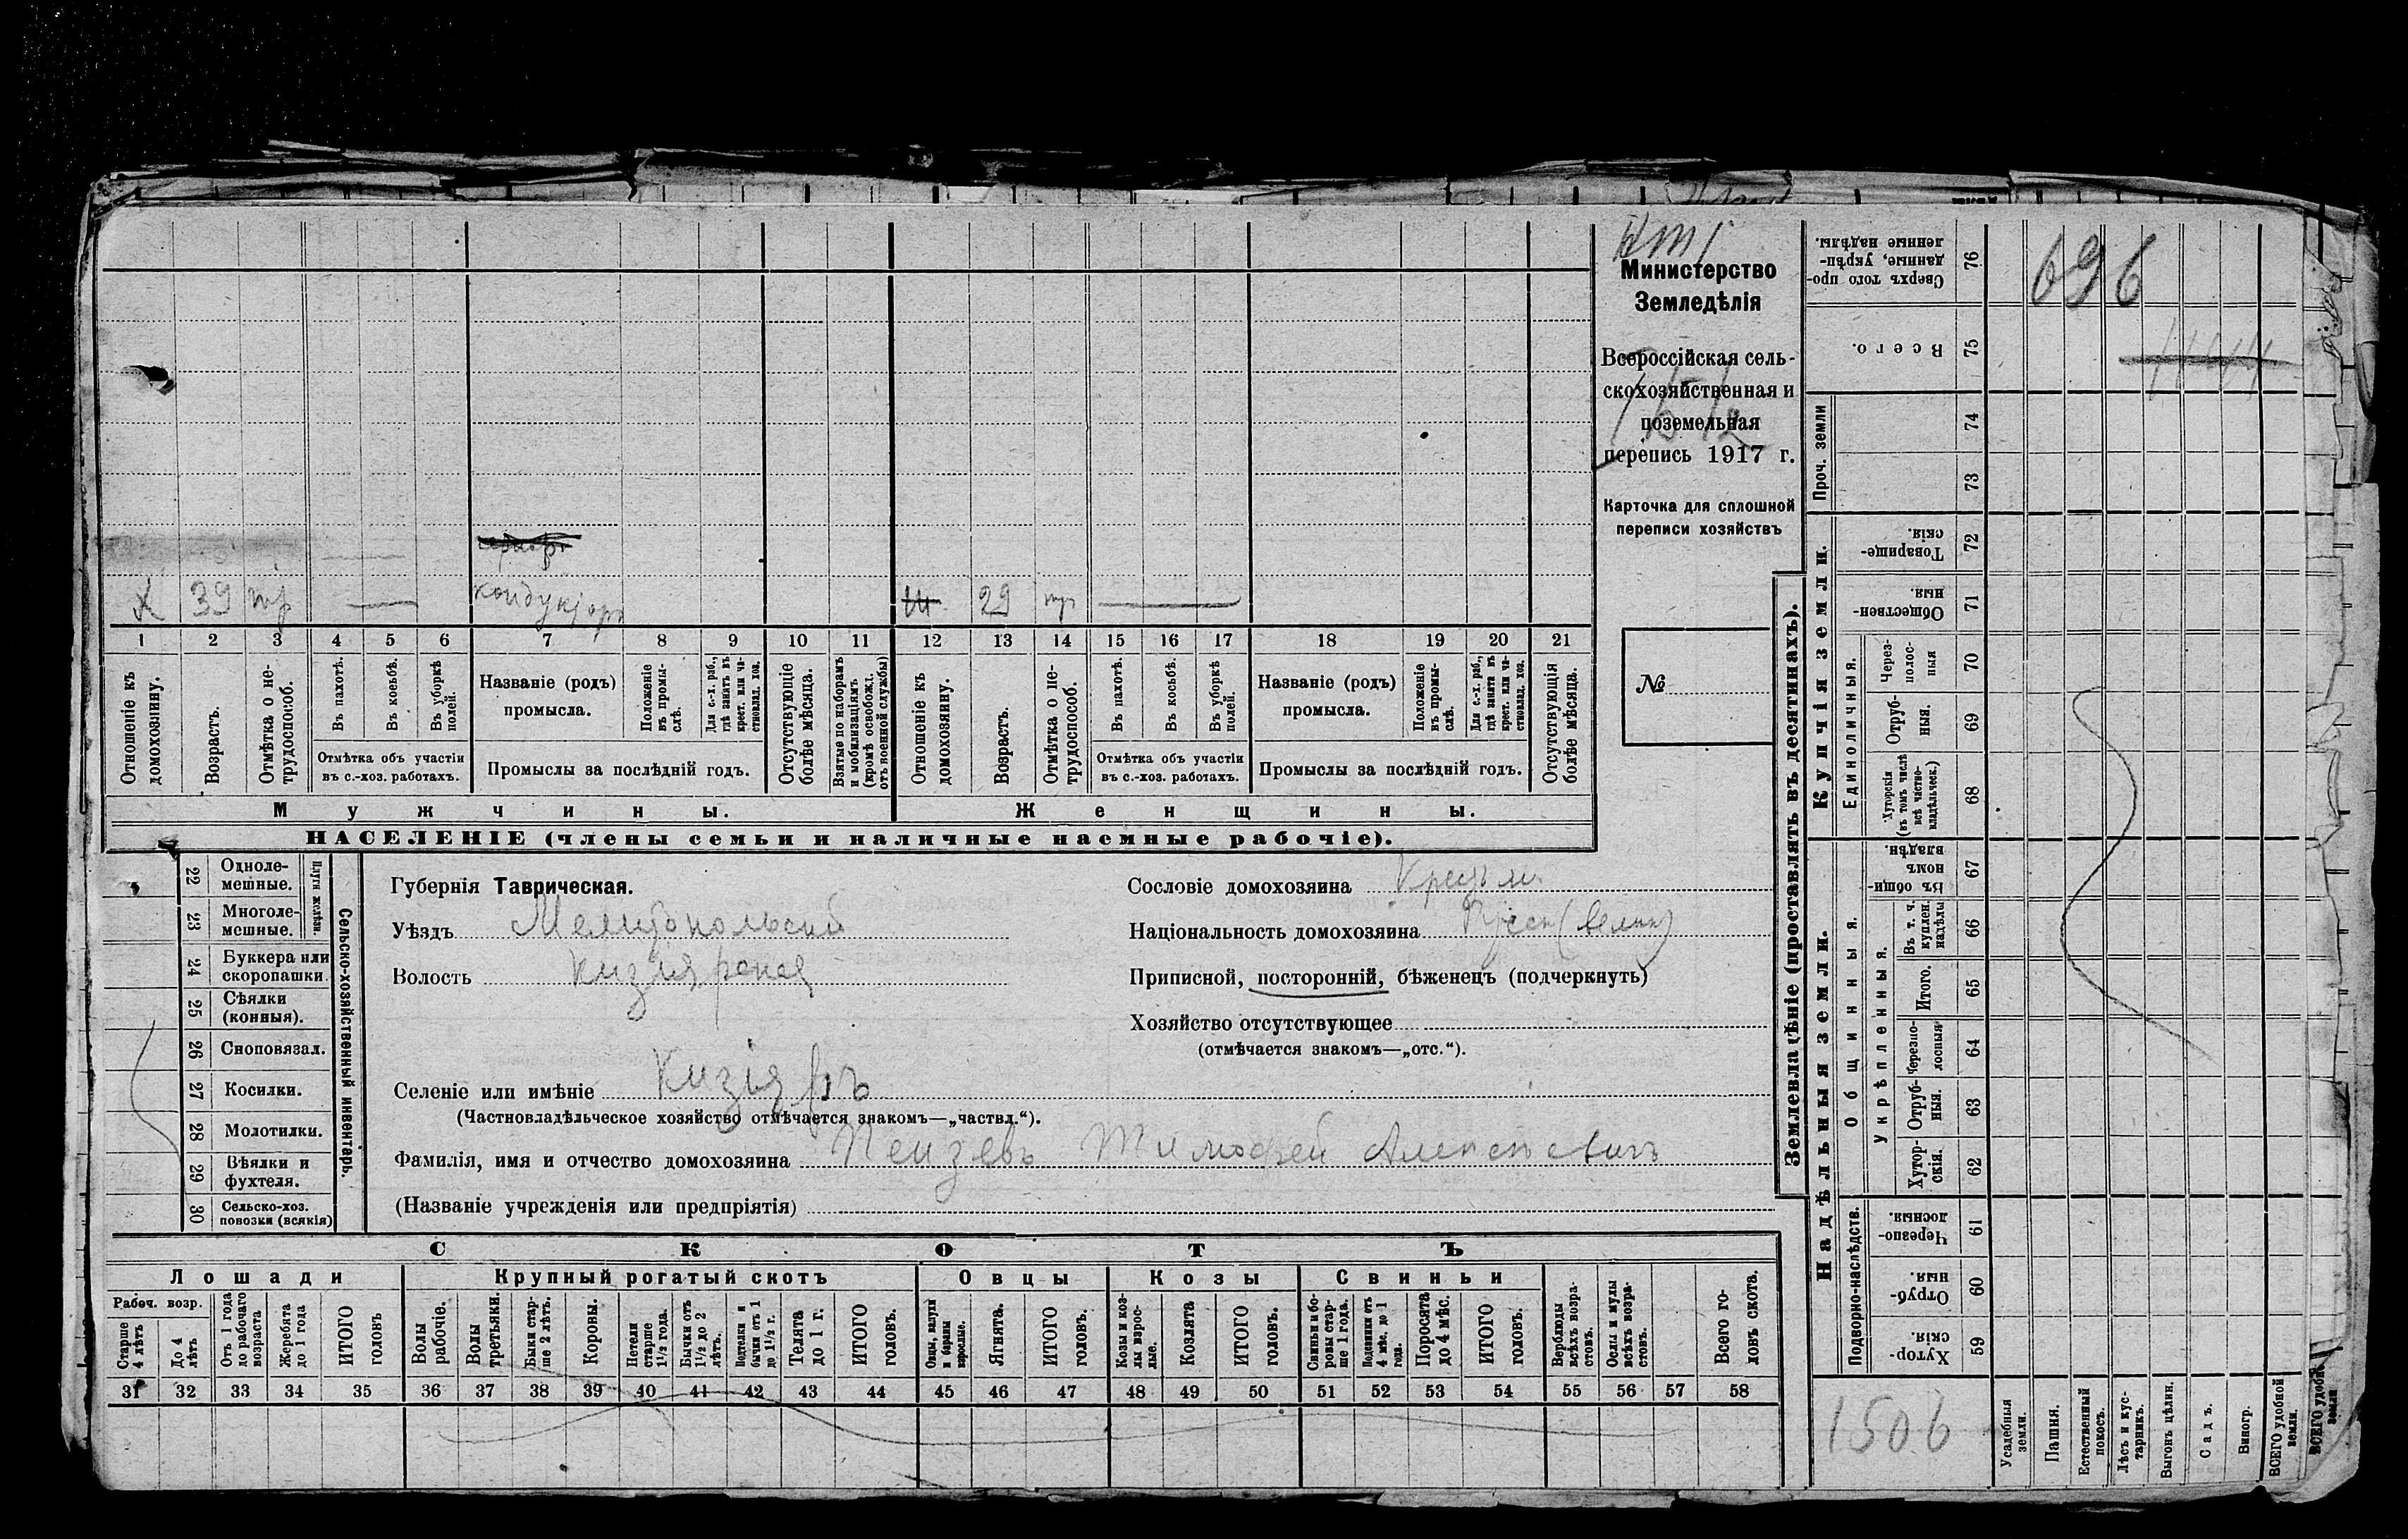 Министерство
Земледѣлія
Всероссійская сель-
скохозяйственная и
поземельная
перепись 1917 г.
Карточка для сплошной
переписи хозяйствъ
№
Х 39 тр
кондукторъ
29
1 2 3 4 5 6 7 8 9 10 11 12 13 14 15 16 17 18 19 20 21
Отношеніе къ домохозяину.
Возрастъ.
Отмѣтка о не-трудоспособ.
Въ пахотѣ.
Въ косьбѣ.
Въ уборкѣ полей.
Отмѣтка объ участіи
въ с.-хоз. работахъ.
Названіе (родъ)
промысла.
Положеніе въ промы-слѣ.
Для с.-х. раб., гдѣ занятъ въ крест. или ча-стновлад. хоз.
Промыслы за послѣдній годъ.
Отсутствующіе болѣе мѣсяца.
Взятые по наборамъ и мобилизаціямъ (кромѣ освобожд. отъ военной службы)
Отношеніе къ домохозяину.
Возрастъ.
Отмѣтка о не-трудоспособ.
Въ пахотѣ.
Въ косьбѣ.
Въ уборкѣ полей.
Отмѣтка объ участіи
въ с.-хоз. работахъ.
Названіе (родъ)
промысла.
Положеніе въ промы-слѣ.
Для с.-х. раб., гдѣ занята въ крест. или ча-стновлад. хоз.
Промыслы за послѣдній годъ.
Отсутствующія болѣе мѣсяца.
Мужчины. Женщины.
НАСЕЛЕНІЕ (члены семьи и наличные наемные рабочіе).
Сельско-хозяйственный инвентарь.
Плуги желѣзн.
22 Одноле-мешные.
23 Многоле-мешные.
24 Буккера или скоропашки.
25 Сѣялки (конныя).
26 Сноповязал.
27 Косилки.
28 Молотилки.
29 Вѣялки и фухтеля.
30 Сельско-хоз. повозки (всякія)
Губернія Таврическая.
Уѣздъ Мелитопольскій
Волость Кизіярская
Селеніе или имѣніе Кизіяръ
(Частновладѣльческое хозяйство отмѣчается знакомъ—„частвл.“).
Сословіе домохозяина
Національность домохозяина Русск (Велик)
Приписной, посторонній, бѣженецъ (подчеркнуть)
Хозяйство отсутствующее
(отмѣчается знакомъ—„отс.“).
Фамилія, имя и отчество домохозяина Пензевъ Тимофей Алексѣевичъ
(Названіе учрежденія или предпріятія)
СКОТЪ
Лошади Крупный рогатый скотъ Овцы Козы Свиньи
Рабоч. возр.
Старше 4 лѣтъ
До 4 лѣтъ
Отъ 1 года до рабочаго возраста
Жеребята до 1 года
ИТОГО головъ
Волы рабочіе.
Волы третьяки.
Быки стар-ше 2 лѣтъ.
Коровы.
Нетели старше 1½ года.
Бычки отъ 1½ до 2 лѣтъ.
Подтелки и бычки отъ 1 до 1½ г.
Телята до 1 г.
ИТОГО головъ.
Овцы, валухи и бараны взрослые.
Ягнята.
ИТОГО головъ.
Козы и коз-лы взрос-лые.
Козлята
ИТОГО головъ.
Свиньи и бо-ровы стар-ше 1 года.
Подсвинки отъ 4 мѣс. до 1 года.
Поросята до 4 мѣс.
ИТОГО головъ.
Верблюды всѣхъ возра-стовъ.
Ослы и мулы всѣхъ возра-стовъ.
Всего го-ловъ скота.
31 32 33 34 35 36 37 38 39 40 41 42 43 44 45 46 47 48 49 50 51 52 53 54 55 56 57 58
Землевладѣніе (проставлять въ десятинахъ).
Сверхъ того про-данные, укрѣп-ленные надѣлы. 76
696
Всего. 75
Проч. земли
74
73
Купчія земли.
Товарище-скія. 72
Обществен-ныя. 71
Единоличныя.
Через-полос-ныя 70
Отруб-ныя. 69
Хуторскія (въ томъ числѣ всѣ частно-владѣльческ.) 68
Надѣльныя земли.
Общинныя.
Въ общин-номъ владѣн. 67
Укрѣпленныя.
Въ т. ч. куплен. надѣлы 66
Итого. 65
Черезпо-лосныя 64
Отруб-ныя. 63
Хутор-скія. 62
Подворно-наслѣдств.
Черезпо-лосныя. 61
Отруб-ныя. 60
Хутор-скія. 59
1506
Усадебныя земли.
Пашня.
Естественный покосъ.
Лѣсъ и кус-тарникъ.
Выгонъ цѣлин.
Садъ.
Виногр.
ВСЕГО удобной земли.